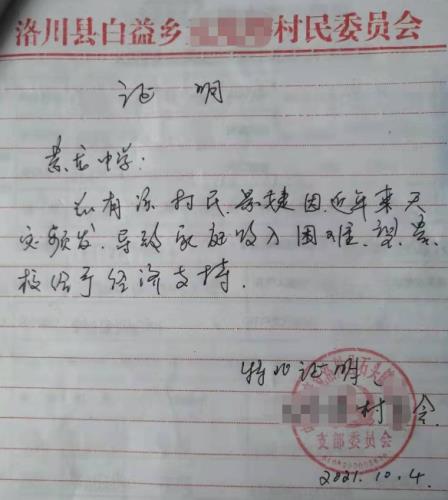 洛川县白益乡 村民委员会
证 明
中学:
兹有我村民 因近年来天
灾频发,导致家庭收入困难,望贵
校给予经济支持.
特此证明
村 会
支部委员会
2021.10.4.